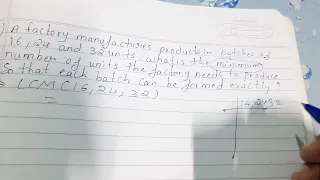 ) A factory manufactures products in batches of
16, 24 and 32 units. what is the minimum
number of units the factory needs to produce
so that each batch can be formed exactly?
LCM(16, 24, 32)
16, 24 32